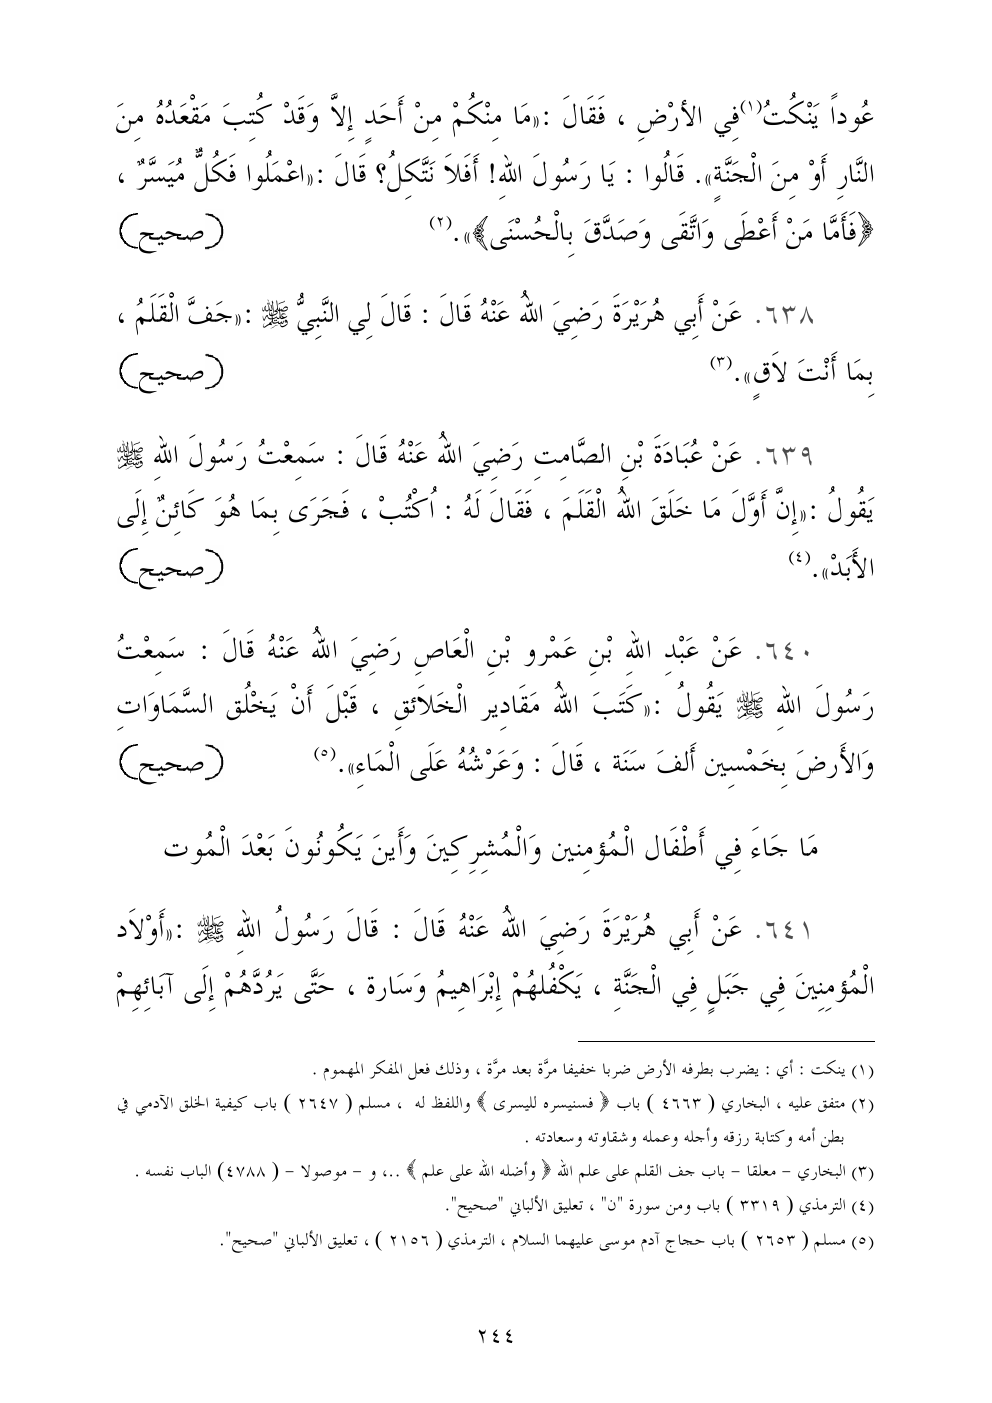 عُوداً يَنْكُتُ(١)فِي الأرْضِ ، فَقَالَ :«مَا مِنْكُمْ مِنْ أَحَدٍ إِلاَّ وَقَدْ كُتِبَ مَقْعَدُهُ مِنَ
النَّارِ أَوْ مِنَ الْجَنَّةِ». قَالُوا : يَا رَسُولَ اللهِ! أَفَلاَ نَتَّكِلُ؟ قَالَ :«اعْمَلُوا فَكُلٌّ مُيَسَّرٌ ،
﴿فَأَمَّا مَنْ أَعْطَى وَاتَّقَى وَصَدَّقَ بِالْحُسْنَى﴾».(٢) (صحيح)
٦٣٨. عَنْ أَبِي هُرَيْرَةَ رَضِيَ اللهُ عَنْهُ قَالَ : قَالَ لِي النَّبِيُّ ﷺ :«جَفَّ الْقَلَمُ ،
بِمَا أَنْتَ لاَقٍ».(٣) (صحيح)
٦٣٩. عَنْ عُبَادَةَ بْنِ الصَّامِتِ رَضِيَ اللهُ عَنْهُ قَالَ : سَمِعْتُ رَسُولَ اللهِ ﷺ
يَقُولُ :«إِنَّ أَوَّلَ مَا خَلَقَ اللهُ الْقَلَمَ ، فَقَالَ لَهُ : اُكْتُبْ ، فَجَرَى بِمَا هُوَ كَائِنٌ إِلَى
الأَبَدْ».(٤) (صحيح)
٦٤٠. عَنْ عَبْدِ اللهِ بْنِ عَمْرو بْنِ الْعَاصِ رَضِيَ اللهُ عَنْهُ قَالَ : سَمِعْتُ
رَسُولَ اللهِ ﷺ يَقُولُ :«كَتَبَ اللهُ مَقَادِير الْخَلاَئقِ ، قَبْلَ أَنْ يَخْلُق السَّمَاوَاتِ
وَالأَرضَ بِخَمْسِين أَلفَ سَنَة ، قَالَ : وَعَرْشُهُ عَلَى الْمَاءِ».(٥) (صحيح)
مَا جَاءَ فِي أَطْفَال الْمُؤمِنِين وَالْمُشِرِكِينَ وَأَينَ يَكُونُونَ بَعْدَ الْمُوت
٦٤١. عَنْ أَبِي هُرَيْرَةَ رَضِيَ اللهُ عَنْهُ قَالَ : قَالَ رَسُولُ اللهِ ﷺ :«أَوْلَاد
الْمُؤمِنِينَ فِي جَبَلٍ فِي الْجَنَّةِ ، يَكْفُلهُمْ إِبْرَاهِيمُ وَسَارة ، حَتَّى يَرُدَّهُمْ إِلَى آبَائِهِمْ
(١) ينكت : أي : يضرب بطرفه الأرض ضربا خفيفا مرَّة بعد مرَّة ، وذلك فعل المفكر المهموم .
(٢) متفق عليه ، البخاري ( ٤٦٦٣ ) باب ﴿ فسنيسره لليسرى ﴾ واللفظ له ، مسلم ( ٢٦٤٧ ) باب كيفية الخلق الآدمي في
بطن أمه وكتابة رزقه وأجله وعمله وشقاوته وسعادته .
(٣) البخاري – معلقا – باب جف القلم على علم الله ﴿ وأضله الله على علم ﴾ ..، و – موصولا – ( ٤٧٨٨) الباب نفسه .
(٤) الترمذي ( ٣٣١٩ ) باب ومن سورة "ن" ، تعليق الألباني "صحيح".
(٥) مسلم ( ٢٦٥٣ ) باب حجاج آدم موسى عليهما السلام ، الترمذي ( ٢١٥٦ ) ، تعليق الألباني "صحيح".
٢٤٤